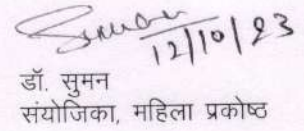 Suman
12/10/23
डॉ. सुमन
संयोजिका, महिला प्रकोष्ठ